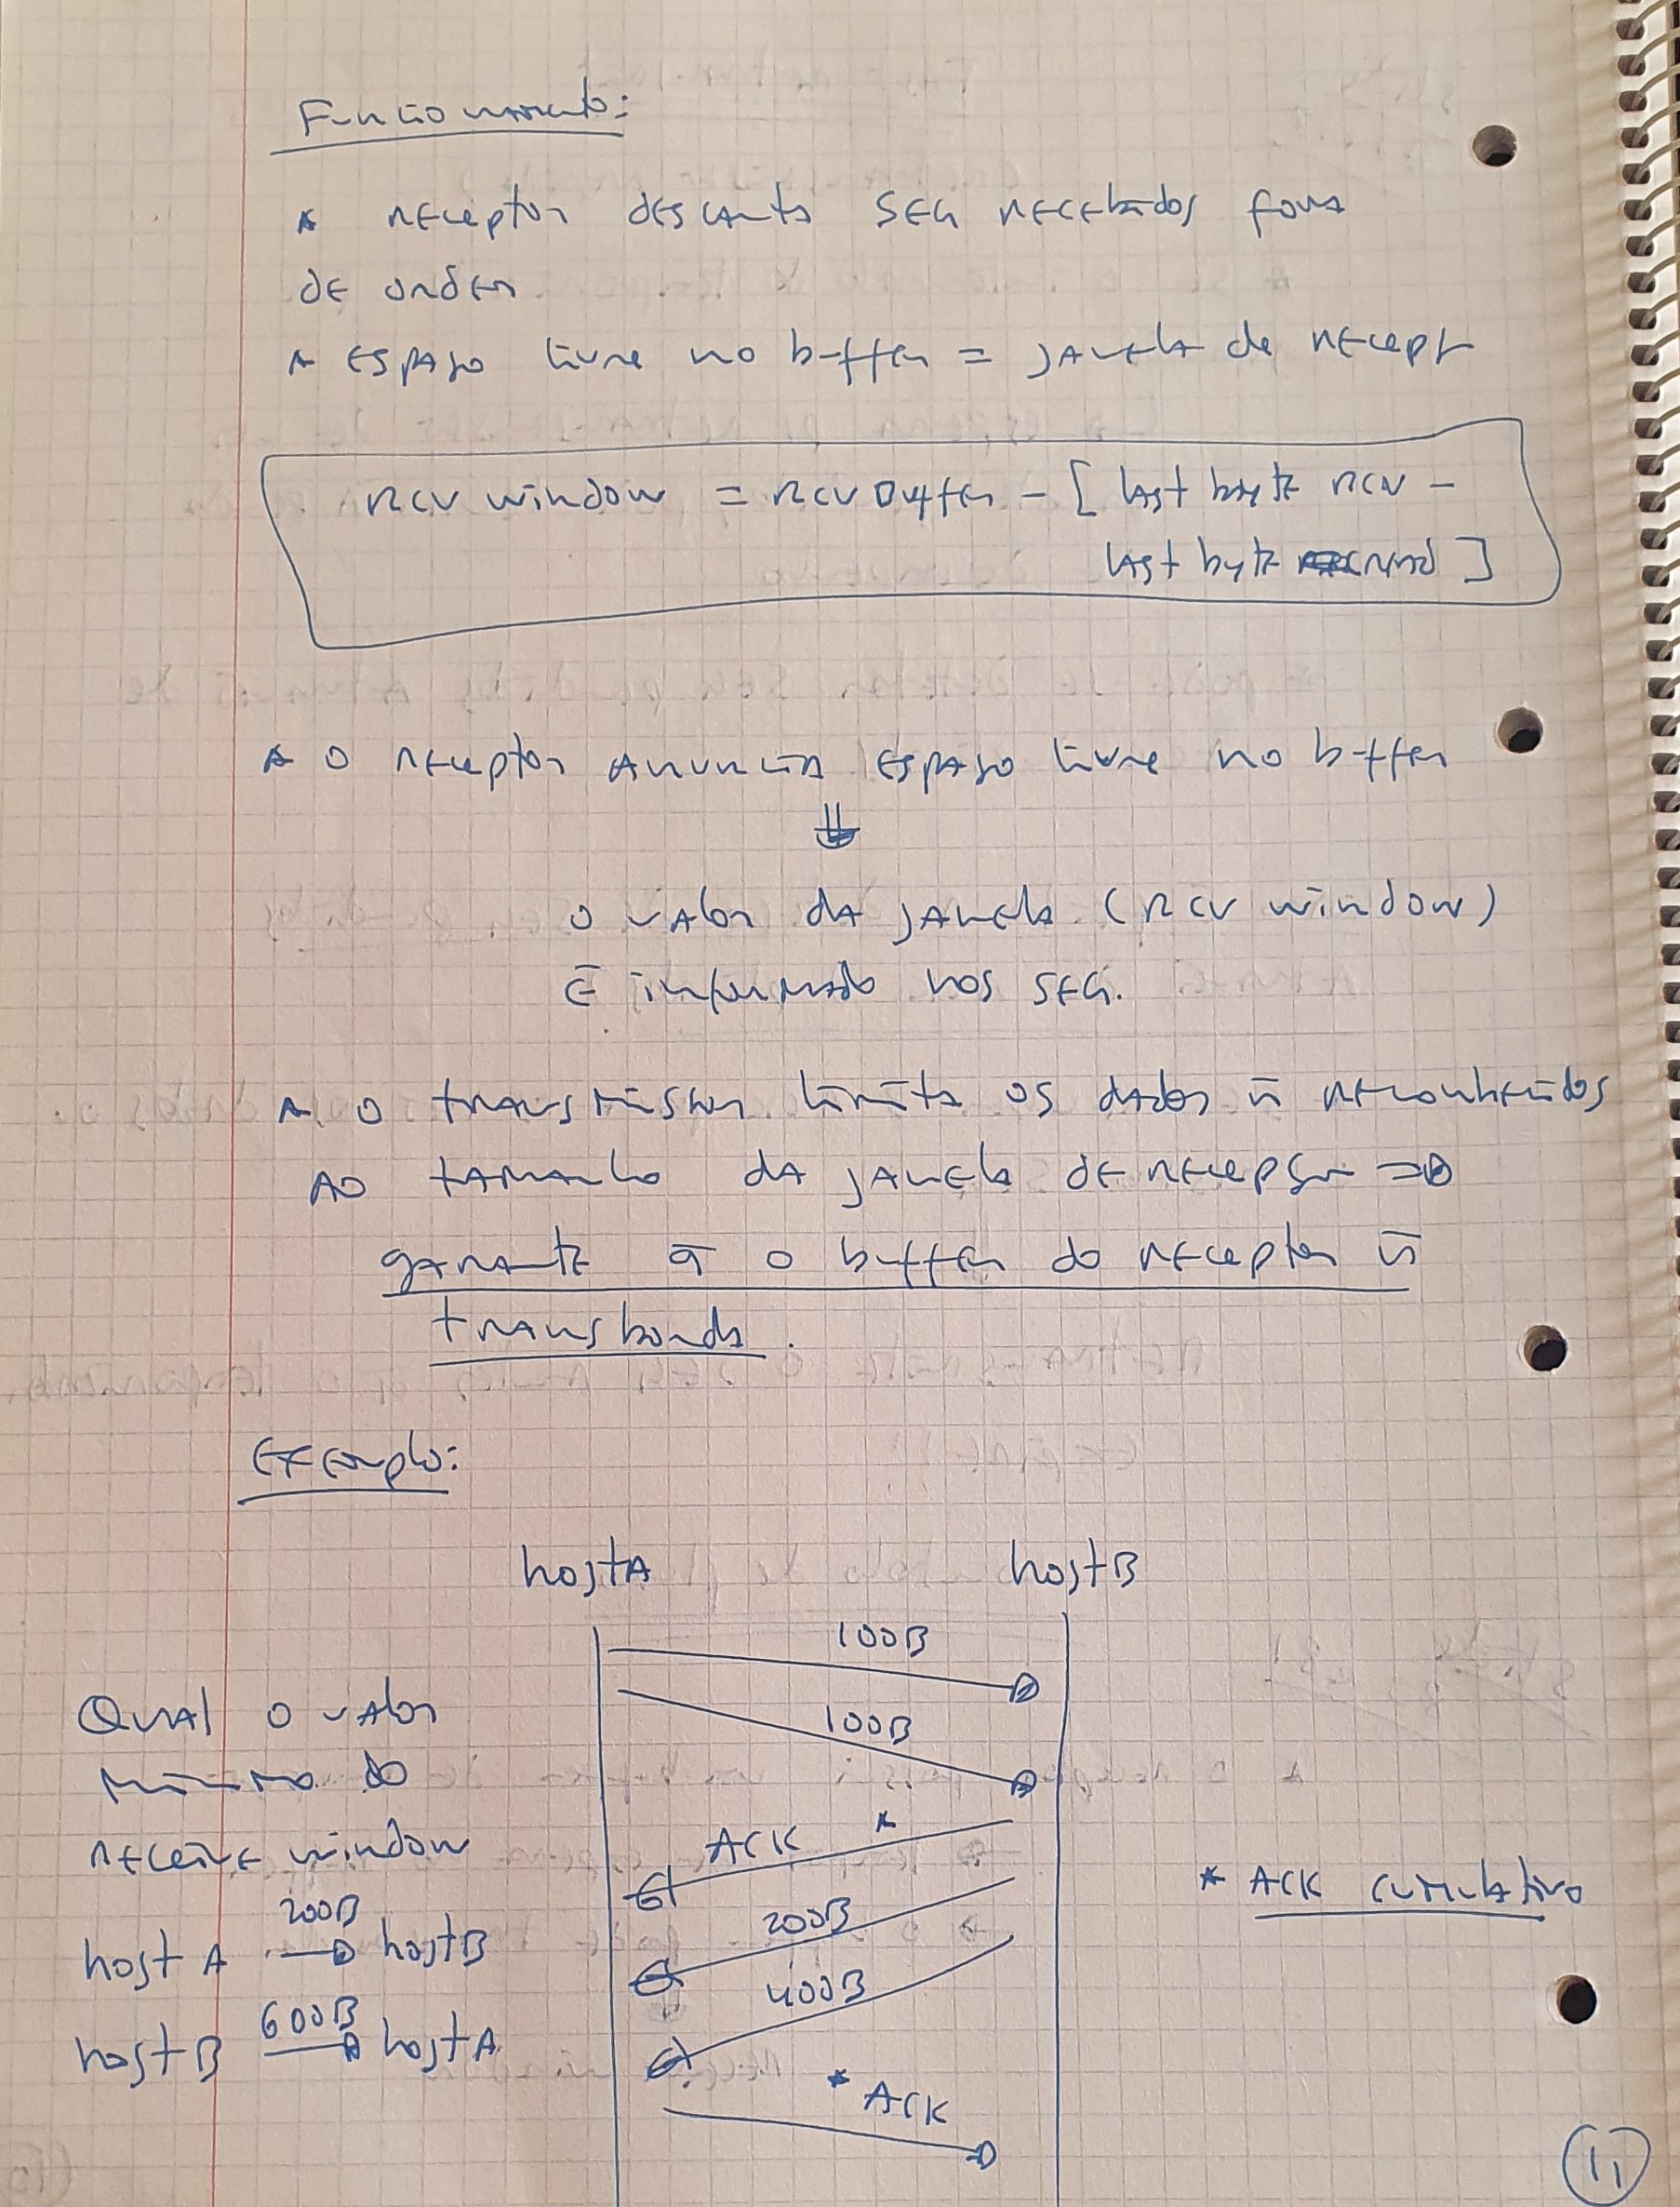 Funcionamento:
* receptor descarta SEG recebidos fora
de ordem
* espaço livre no buffer = janela de recepç
RCV window = RCV Buffer - [last byte RCV -
last byte read]
* o receptor anuncia espaço livre no buffer
⇓
o valor da janela (RCV window)
é informado nos SEG.
* o transmissor limita os dados ñ reconhecidos
ao tamanho da janela de recepção =>
garante q̄ o buffer do receptor ñ
transborda.
Exemplo:
host A host B
100B
100B
ACK *
200B
400B
* ACK
Qual o valor
mínimo do
receive window
200B
host A → host B
600B
host B → host A
* ACK cumulativo
11